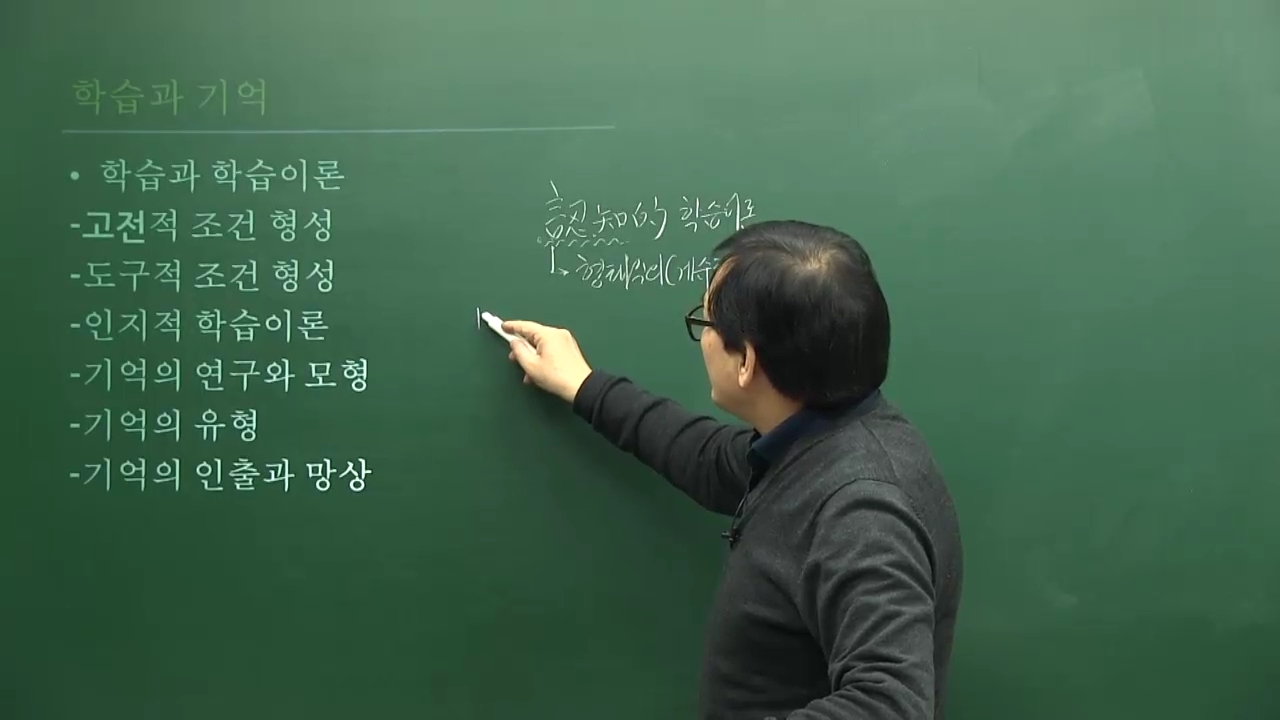 학습과 기억
• 학습과 학습이론
-고전적 조건 형성
-도구적 조건 형성
-인지적 학습이론
-기억의 연구와 모형
-기억의 유형
-기억의 인출과 망상
認知的 학습이론